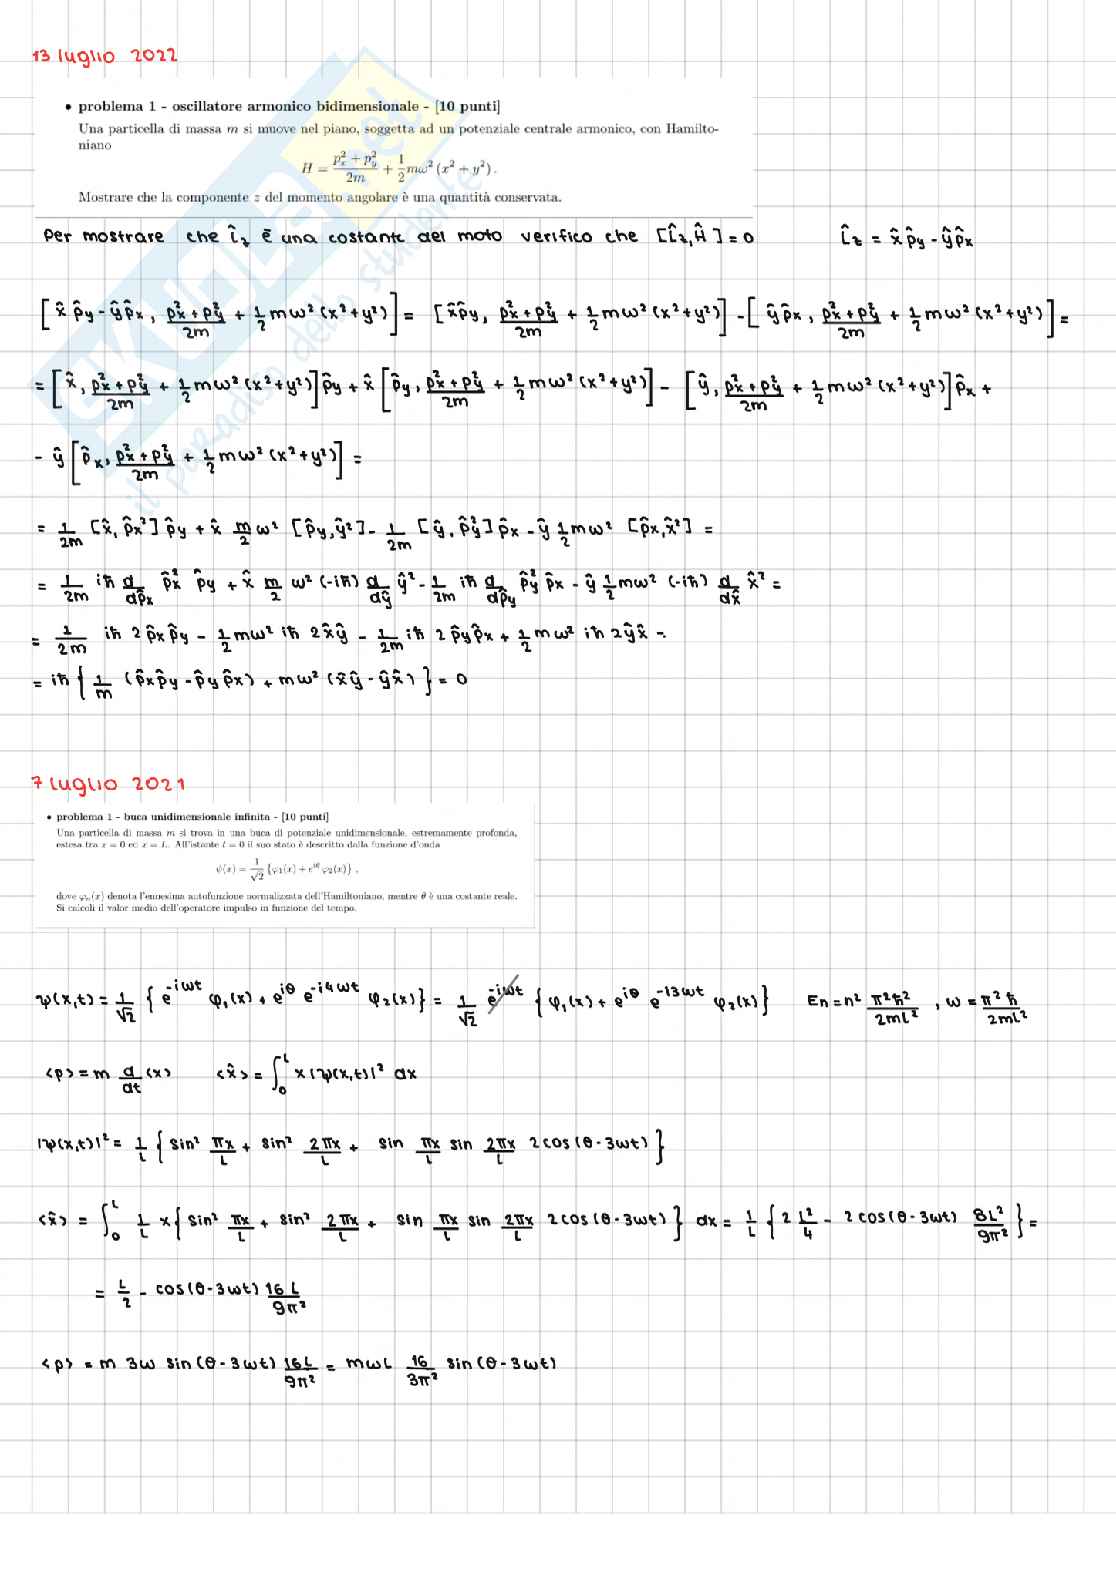 13 luglio 2022
• problema 1 - oscillatore armonico bidimensionale - [10 punti]
Una particella di massa m si muove nel piano, soggetta ad un potenziale centrale armonico, con Hamilto-
niano
H = \frac{p_x^2 + p_y^2}{2m} + \frac{1}{2} mω² (x² + y²) .
Mostrare che la componente z del momento angolare è una quantità conservata.
Per mostrare che L̂z è una costante del moto verifico che [L̂z, Ĥ] = 0 L̂z = x̂p̂y - ŷp̂x
[x̂p̂y - ŷp̂x, \frac{p_x^2 + p_y^2}{2m} + \frac{1}{2} mω²(x²+y²)] = [x̂p̂y, \frac{p_x^2 + p_y^2}{2m} + \frac{1}{2} mω²(x²+y²)] - [ŷp̂x, \frac{p_x^2 + p_y^2}{2m} + \frac{1}{2} mω²(x²+y²)] =
= [x̂, \frac{p_x^2 + p_y^2}{2m} + \frac{1}{2} mω²(x²+y²)] p̂y + x̂ [p̂y, \frac{p_x^2 + p_y^2}{2m} + \frac{1}{2} mω²(x²+y²)] - [ŷ, \frac{p_x^2 + p_y^2}{2m} + \frac{1}{2} mω²(x²+y²)] p̂x +
- ŷ [p̂x, \frac{p_x^2 + p_y^2}{2m} + \frac{1}{2} mω²(x²+y²)] =
= \frac{1}{2m} [x̂, p̂x²] p̂y + x̂ \frac{m}{2} ω² [p̂y, ŷ²] - \frac{1}{2m} [ŷ, p̂y²] p̂x - ŷ \frac{1}{2} mω² [p̂x, x̂²] =
= \frac{1}{2m} iħ \frac{d}{dp̂x} p̂x² p̂y + x̂ \frac{m}{2} ω² (-iħ) \frac{d}{dŷ} ŷ² - \frac{1}{2m} iħ \frac{d}{dp̂y} p̂y² p̂x - ŷ \frac{1}{2} mω² (-iħ) \frac{d}{dx̂} x̂² =
= \frac{1}{2m} iħ 2 p̂x p̂y - \frac{1}{2} mω² iħ 2 x̂ŷ - \frac{1}{2m} iħ 2 p̂y p̂x + \frac{1}{2} mω² iħ 2 ŷx̂ =
= iħ { \frac{1}{m} (p̂x p̂y - p̂y p̂x) + mω² (x̂ŷ - ŷx̂) } = 0
7 luglio 2021
• problema 1 - buca unidimensionale infinita - [10 punti]
Una particella di massa m si trova in una buca di potenziale unidimensionale, estremamente profonda,
estesa tra x = 0 ed x = L. All'istante t = 0 il suo stato è descritto dalla funzione d'onda
ψ(x) = \frac{1}{\sqrt{2}} {φ₁(x) + e^{iθ} φ₂(x)} ,
dove φₙ(x) denota l'ennesima autofunzione normalizzata dell'Hamiltoniano, mentre θ è una costante reale.
Si calcoli il valor medio dell'operatore impulso in funzione del tempo.
ψ(x,t) = \frac{1}{\sqrt{2}} { e^{-iωt} φ₁(x) + e^{iθ} e^{-i4ωt} φ₂(x) } = \frac{1}{\sqrt{2}} e^{-iωt} { φ₁(x) + e^{iθ} e^{-i3ωt} φ₂(x) } En = n² \frac{π²ħ²}{2mL²} , ω = \frac{π²ħ}{2mL²}
<p> = m \frac{d}{dt} <x> <x̂> = ∫₀^L x |ψ(x,t)|² dx
|ψ(x,t)|² = \frac{1}{L} { sin² \frac{πx}{L} + sin² \frac{2πx}{L} + sin \frac{πx}{L} sin \frac{2πx}{L} 2cos(θ-3ωt) }
<x̂> = ∫₀^L \frac{1}{L} x { sin² \frac{πx}{L} + sin² \frac{2πx}{L} + sin \frac{πx}{L} sin \frac{2πx}{L} 2cos(θ-3ωt) } dx = \frac{1}{L} { 2 \frac{L²}{4} - 2cos(θ-3ωt) \frac{8L²}{9π²} } =
= \frac{L}{2} - cos(θ-3ωt) \frac{16L}{9π²}
<p> = m 3ω sin(θ-3ωt) \frac{16L}{9π²} = mωL \frac{16}{3π²} sin(θ-3ωt)
SKUOLA.net
il paradiso dello studente